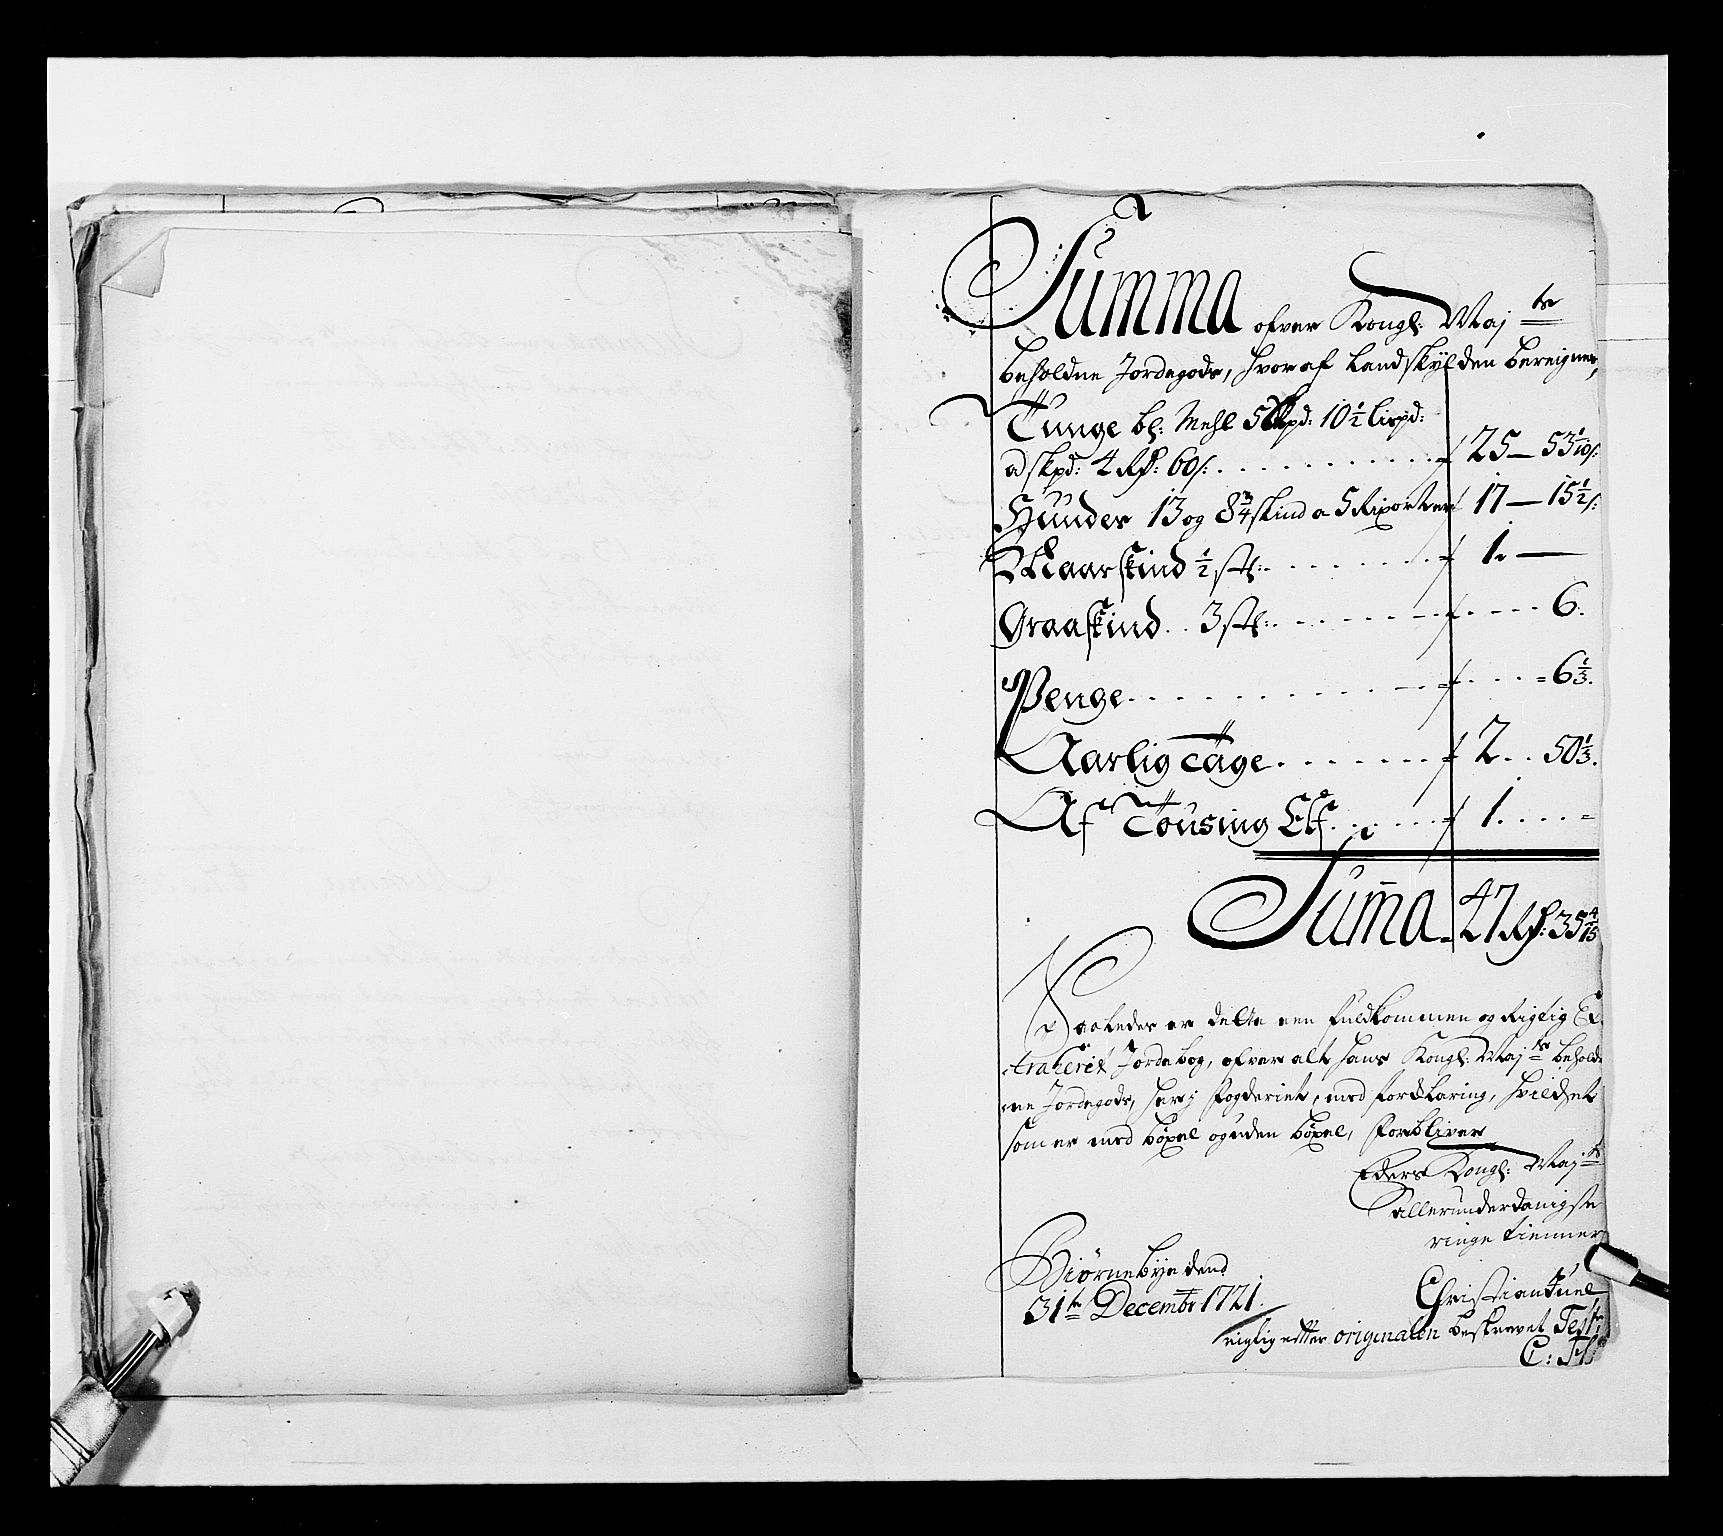 Summa ofver Kongl: Maj ts
beholdne Jordegods, hvoraf Landskylden bereignes,
Tunge bl: Mehl 5 skpd: 10½ Lispd:
a skpd: 4 Rd: 60 s: . . . . . . . . . . 25 — 53 1/10 s:
Huuder 13 og 8¾ skind a 5 Rixorter 17 — 15½ s:
Maarskind ½ st: . . . . . . . 1. —
Graaskind . . 3 st: . . . . . . . . . . . 6.
Penge . . . . . . . . . . . . . . 6⅓.
Aarlig Tage . . . . . . . 2 . . 50⅓.
Af Tousing Elf . . . . . . 1 . . . . =
Summa 47 Rd: 35 4/15
Saaledes er dette een fuldkommen og Rigtig Ex
traherit Jordebog, ofver alt hans Kongl: Maj ts behold
ne Jordegods, her j fogderiet, med forklaring, hvilchet
som er med bøxel og uden bøxel, forbliver
Eders Kongl: Maj ts
allerunderdanigste
ringe tienner
Biørnebye dend
31te Decembr 1721.
Christian Juel
rigtig efter originalen beskrevet Test:
C: